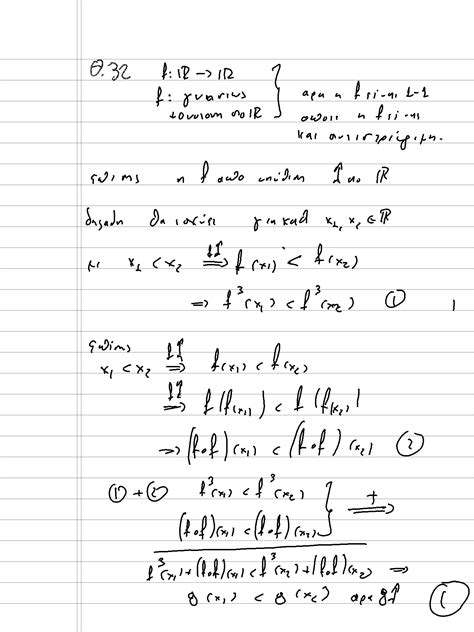 θ.32 f: ℝ → ℝ
f: γνησίως
άρα η f είναι 1-1
οπότε η f είναι
και αντιστρέψιμη.
η f από υπόθεση ↑ στο ℝ
δηλαδή θα ισχύει για κάθε x₁, x₂ ∈ ℝ
με x₁ < x₂ f↑ ⟹ f(x₁) < f(x₂)
⟹ f³(x₁) < f³(x₂) ①
x₁ < x₂ f↑ ⟹ f(x₁) < f(x₂)
f↑ ⟹ f(f(x₁)) < f(f(x₂))
⟹ (f∘f)(x₁) < (f∘f)(x₂) ②
①+② f³(x₁) < f³(x₂)
(f∘f)(x₁) < (f∘f)(x₂) } + ⟹
f³(x₁) + (f∘f)(x₁) < f³(x₂) + (f∘f)(x₂) ⟹
g(x₁) < g(x₂) άρα g↑